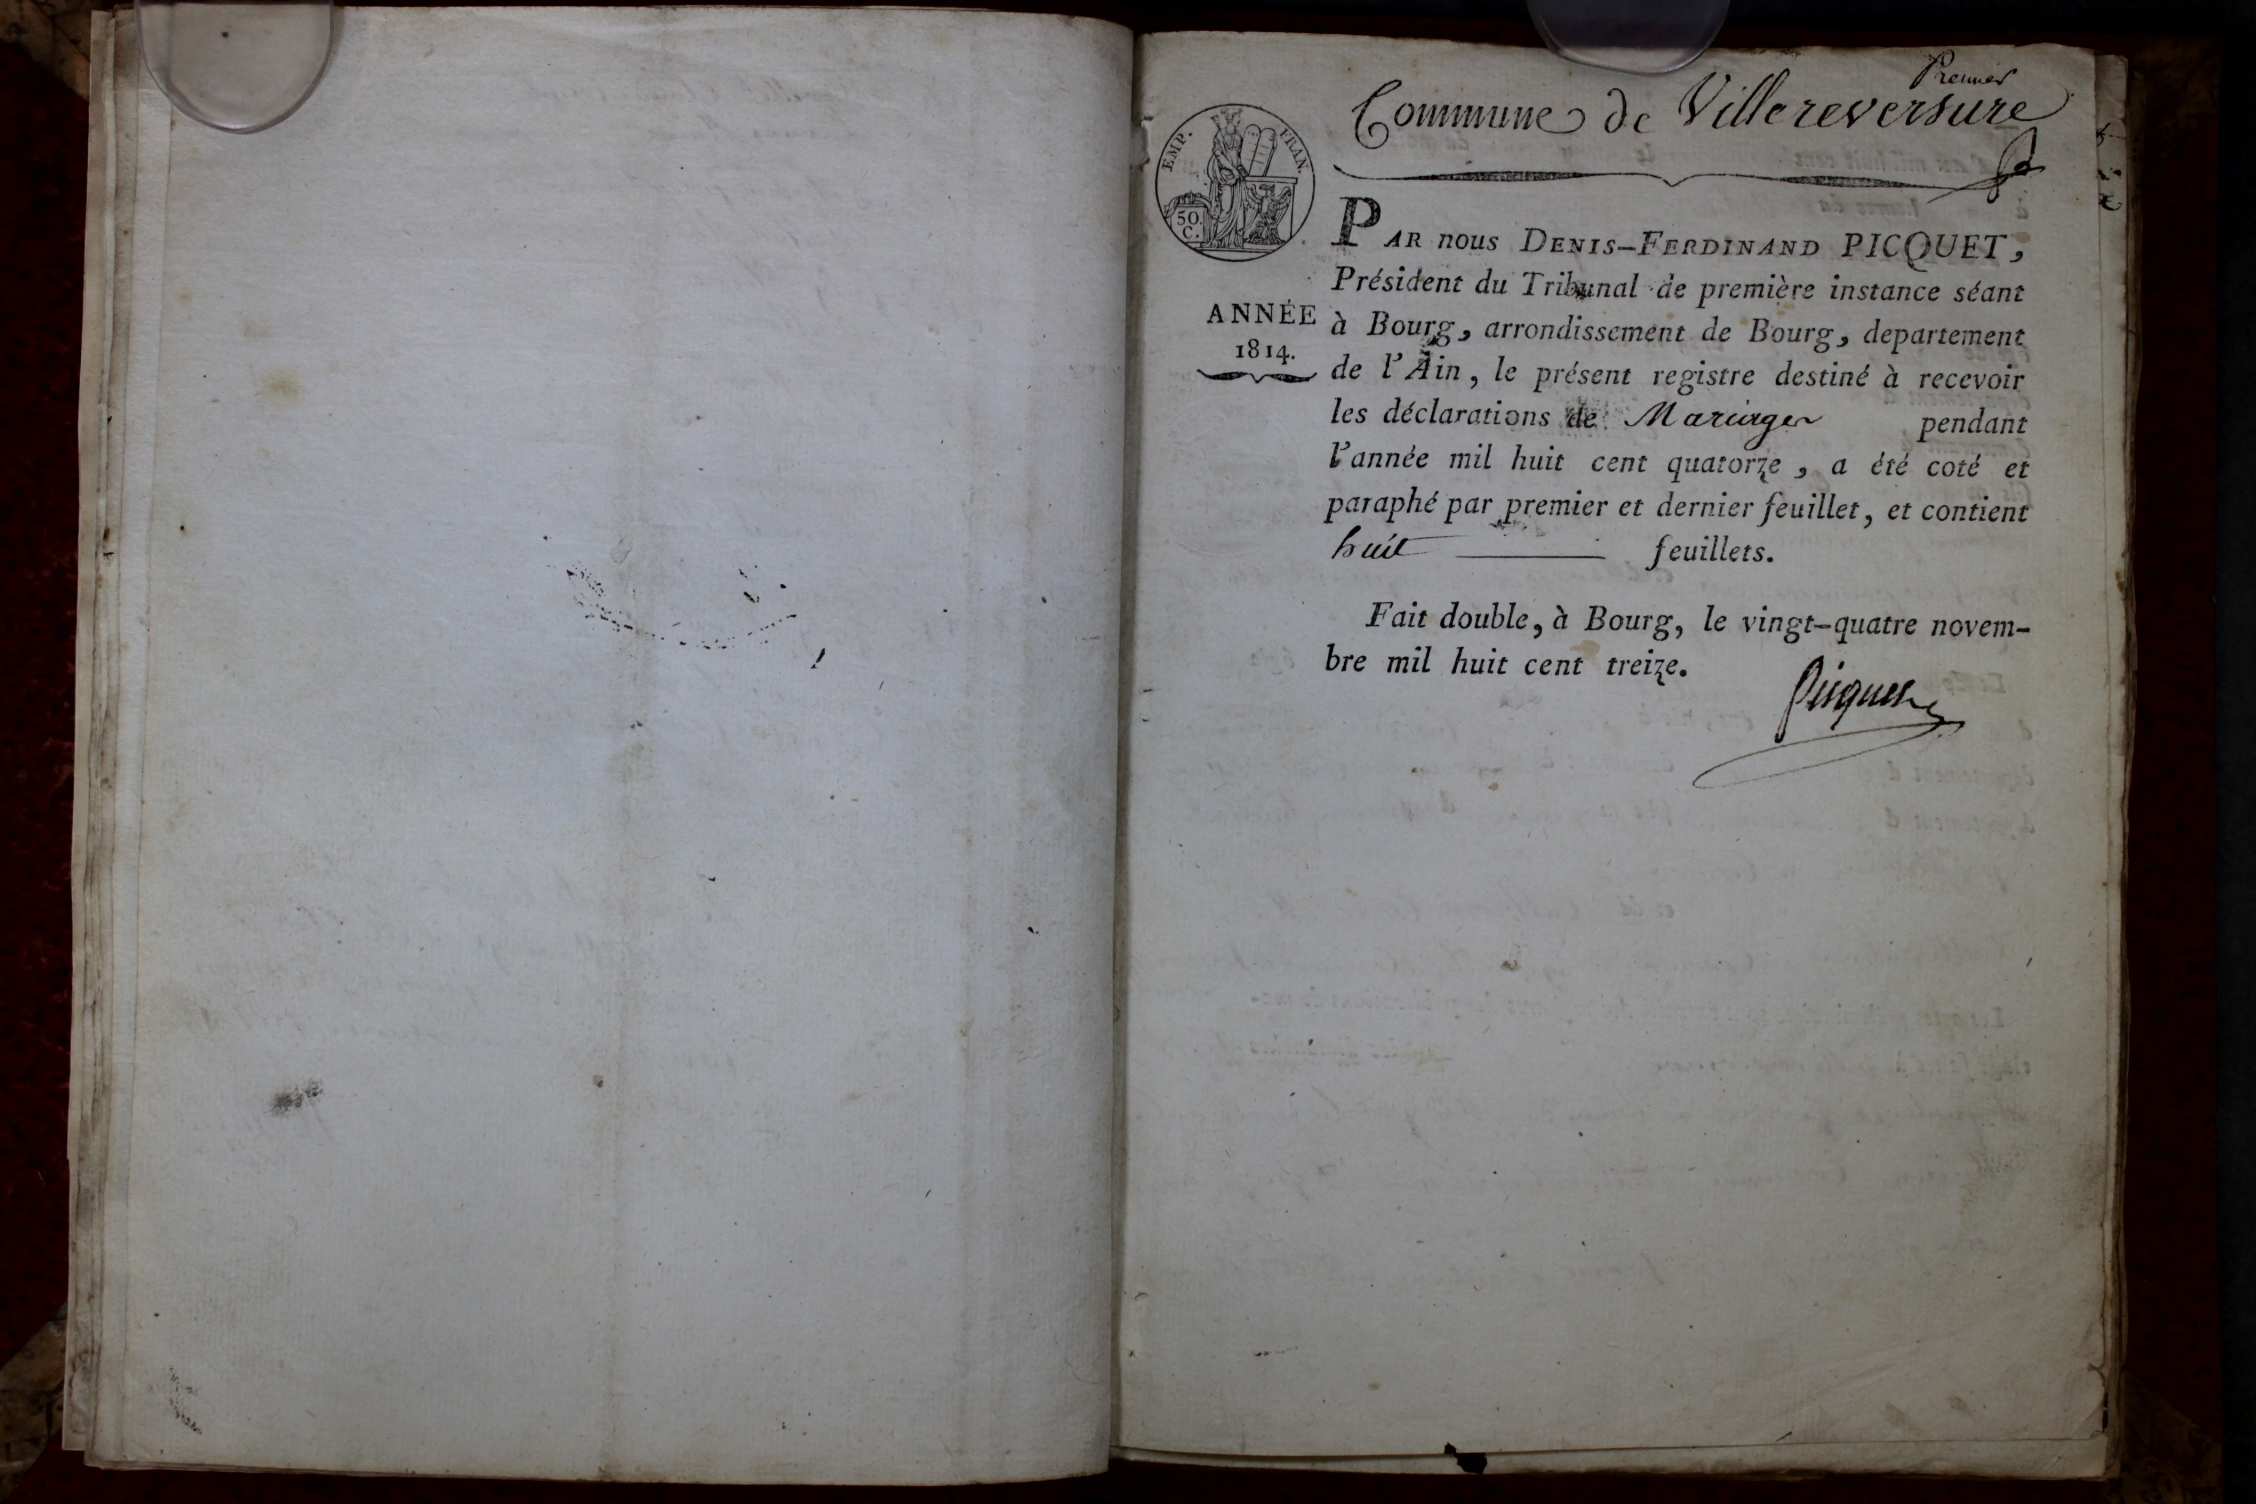 Premier
Commune de Villereversure
EMP. FRAN.
50.
C.
ANNÉE
1814.
PAR nous DENIS-FERDINAND PICQUET,
Président du Tribunal de première instance séant
à Bourg, arrondissement de Bourg, departement
de l'Ain, le présent registre destiné à recevoir
les déclarations de Mariages pendant
l'année mil huit cent quatorze, a été coté et
paraphé par premier et dernier feuillet, et contient
huit feuillets.
Fait double, à Bourg, le vingt-quatre novem-
bre mil huit cent treize.
Picquet